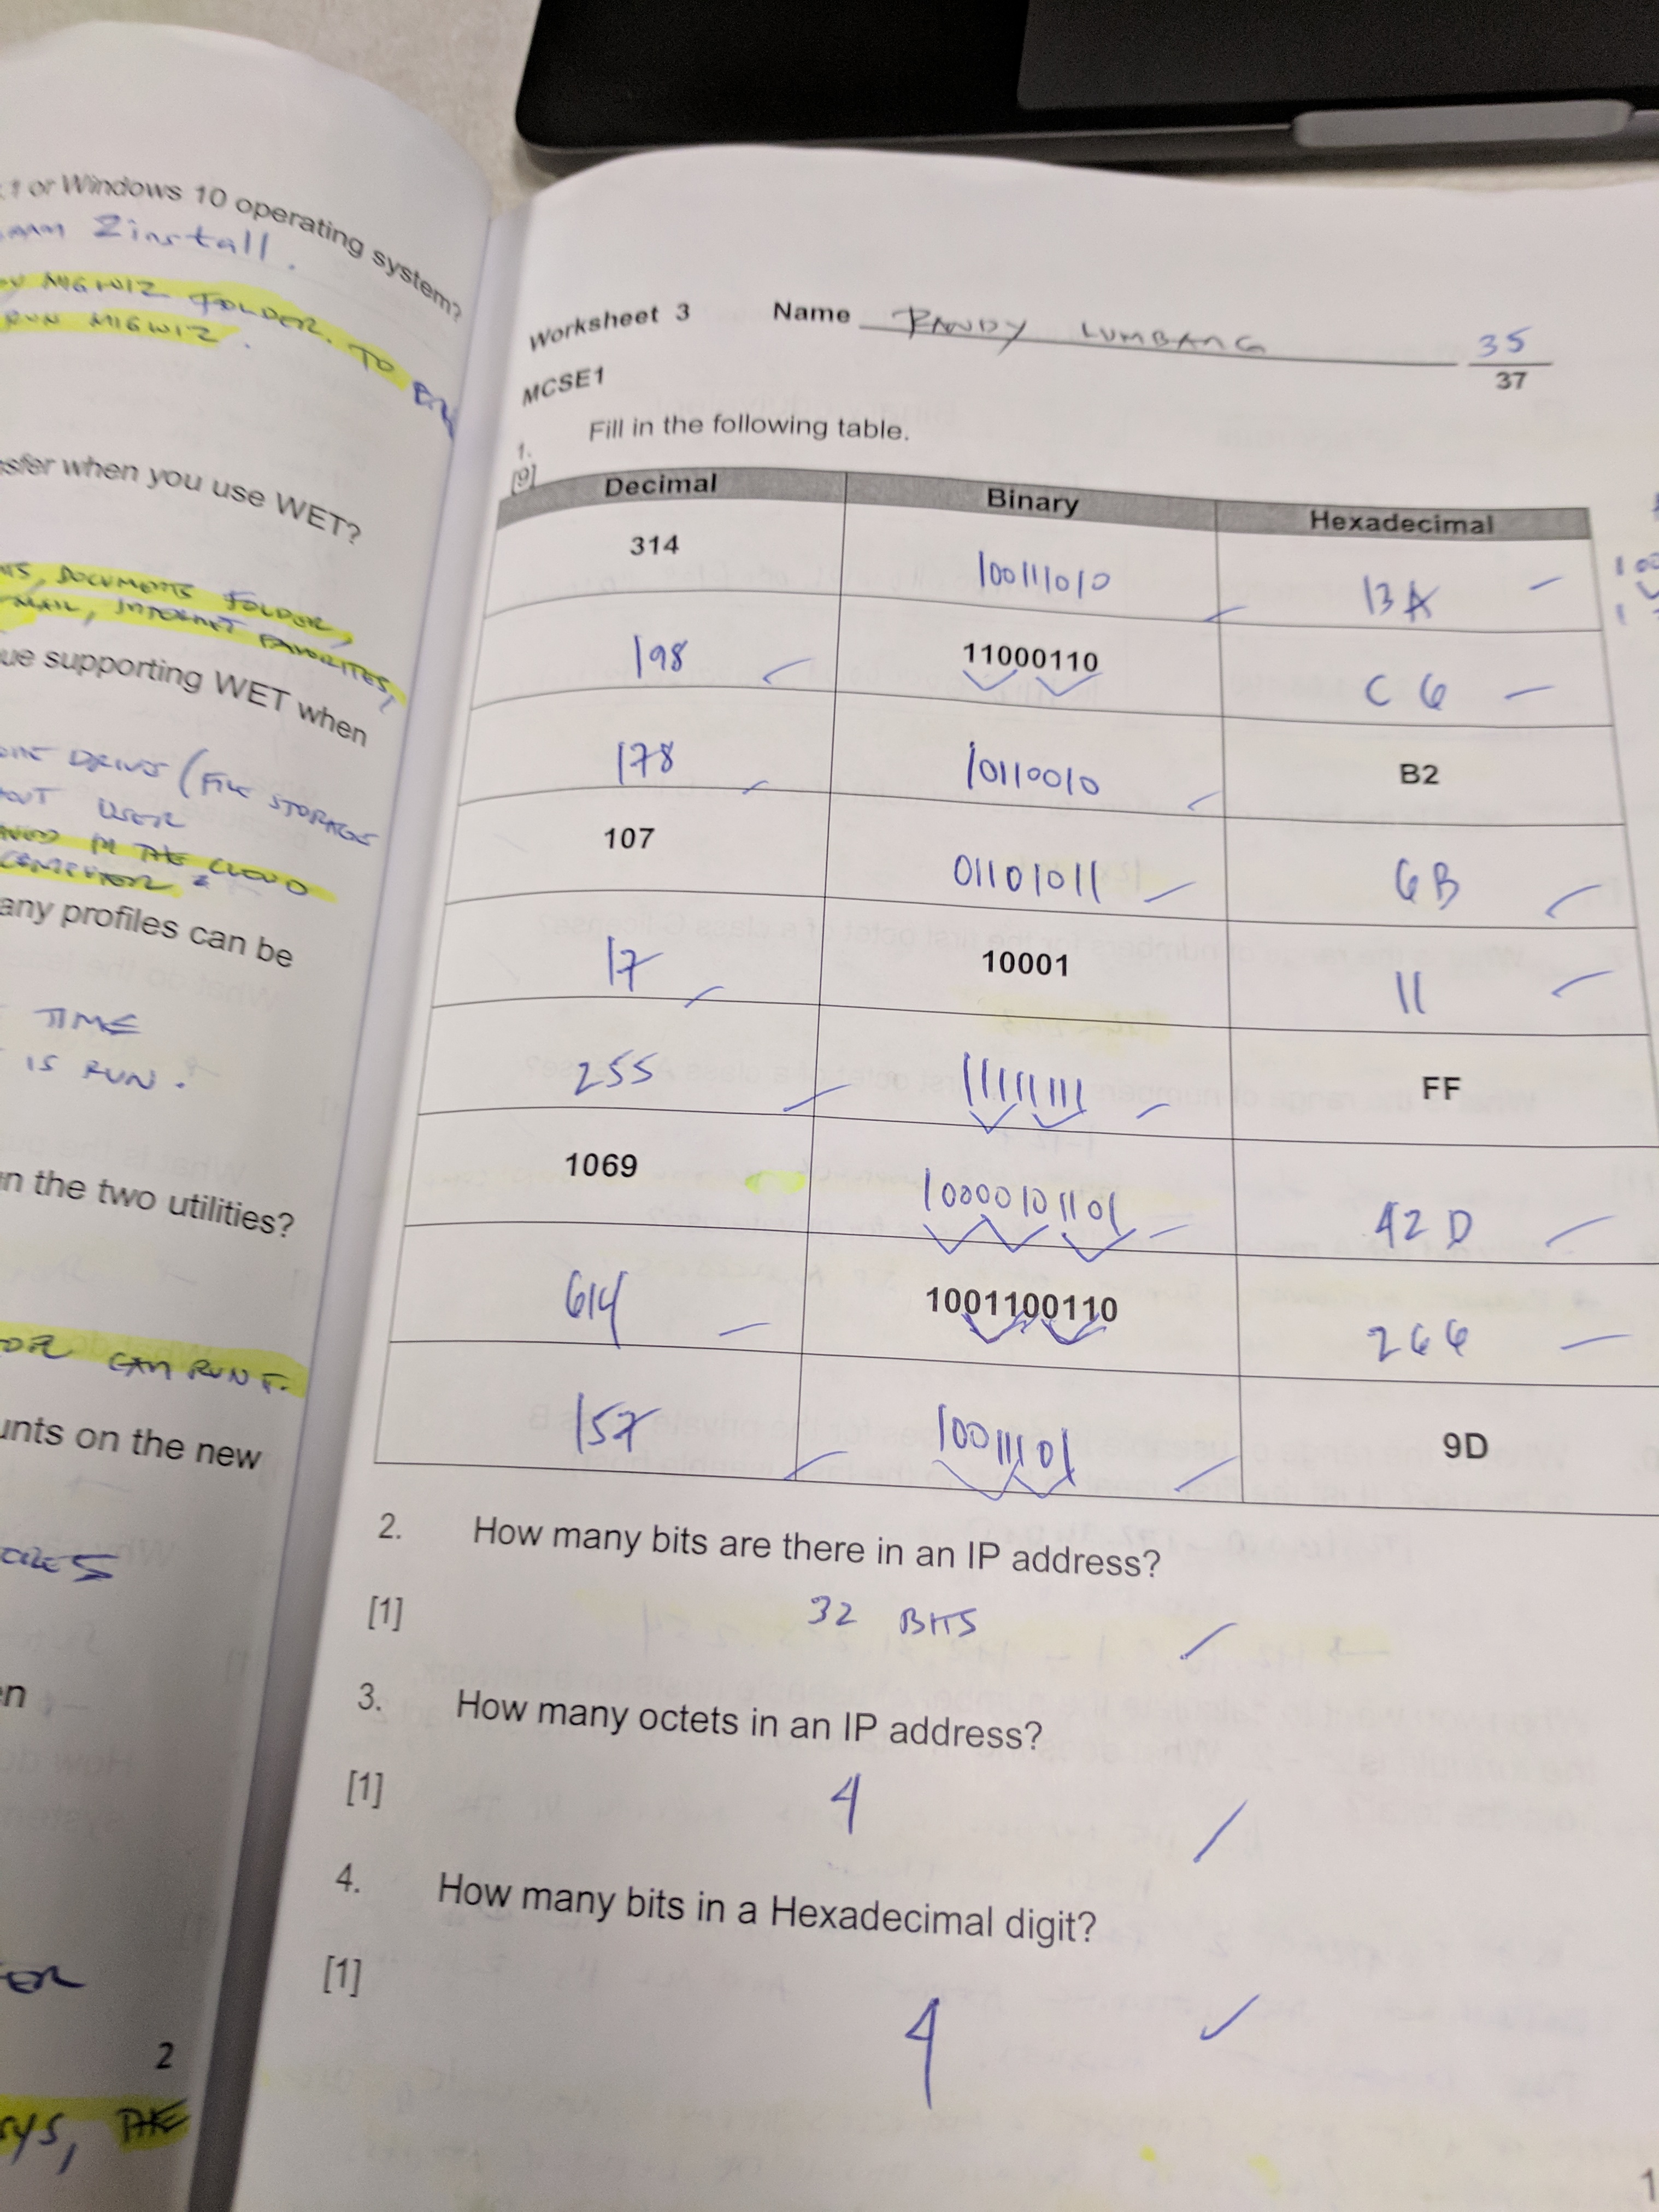 1 or Windows 10 operating system?
Zinstall.
MIGWIZ FOLDER. TO
RUN MIGWIZ.
sfer when you use WET?
DOCUMENTS FOLDER,
MAIL, INTERNET FAVORITES,
ue supporting WET when
DRIVE (FILE STORAGE
OUT USER
IN THE CLOUD
COMPUTER
any profiles can be
TIME
IS RUN.
n the two utilities?
CAN RUN
unts on the new
en
2
SYS, THE
Worksheet 3 Name RANDY LUMBANG 35
37
MCSE1
1. Fill in the following table.
[9]
Decimal Binary Hexadecimal
314 100111010 13A
198 11000110 C6
178 10110010 B2
107 01101011 6B
17 10001 11
255 11111111 FF
1069 10000101101 42D
614 1001100110 266
157 10011101 9D
2. How many bits are there in an IP address?
[1] 32 BITS
3. How many octets in an IP address?
[1] 4
4. How many bits in a Hexadecimal digit?
[1] 4
1